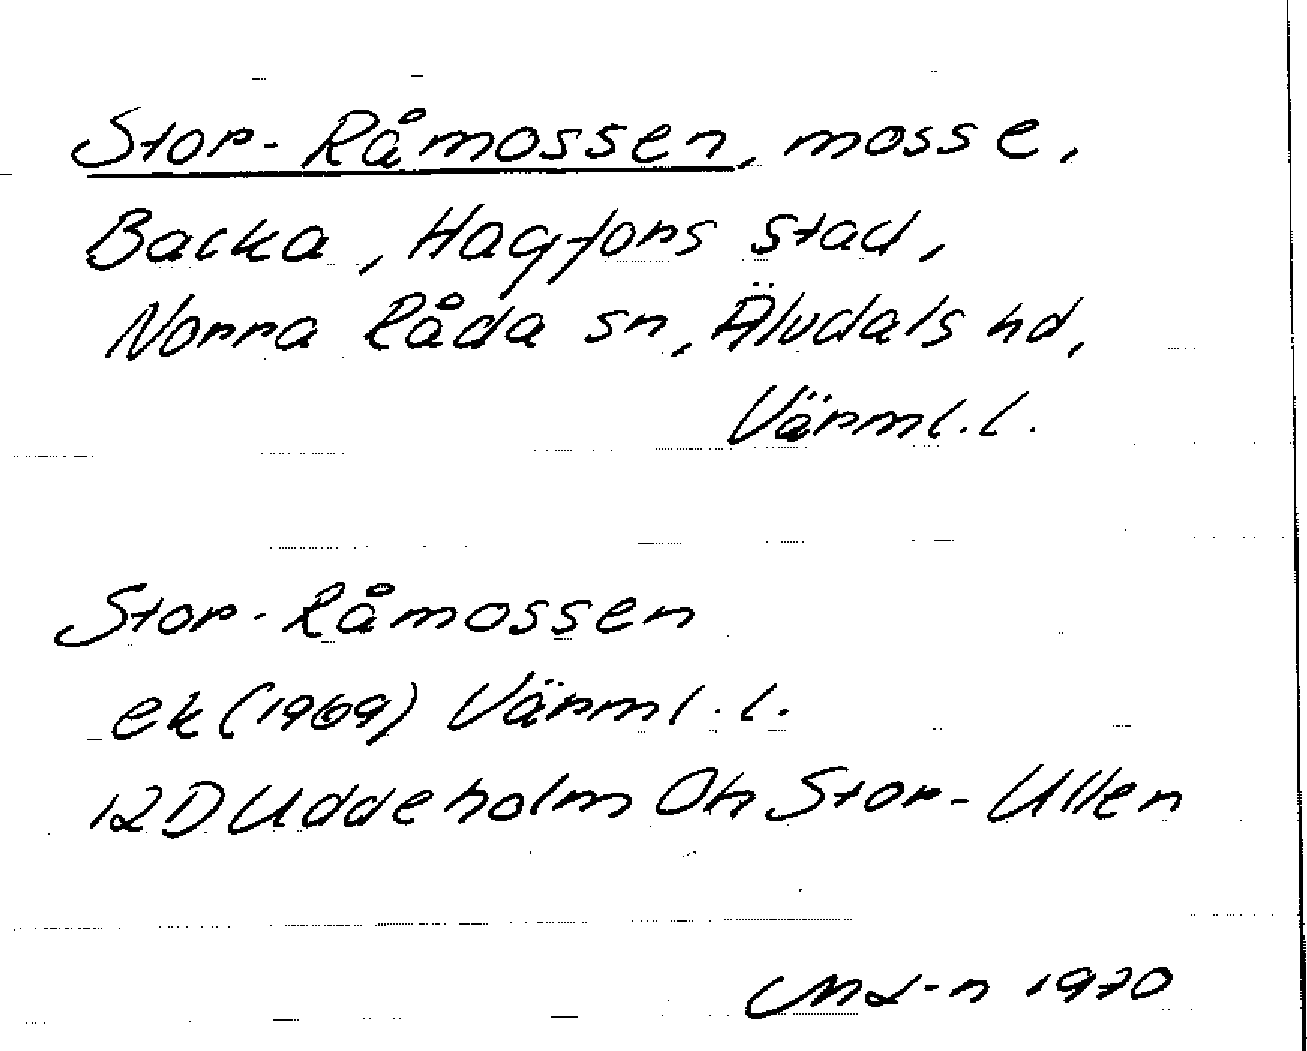 Stor-Råmossen, mosse,
Backa, Hagfors stad,
Norra Råda sn, Älvdals hd,
Värml. l.
Stor-Råmossen
ek (1969) Värml. l.
12D Uddeholm 0h Stor-Ullen
1970